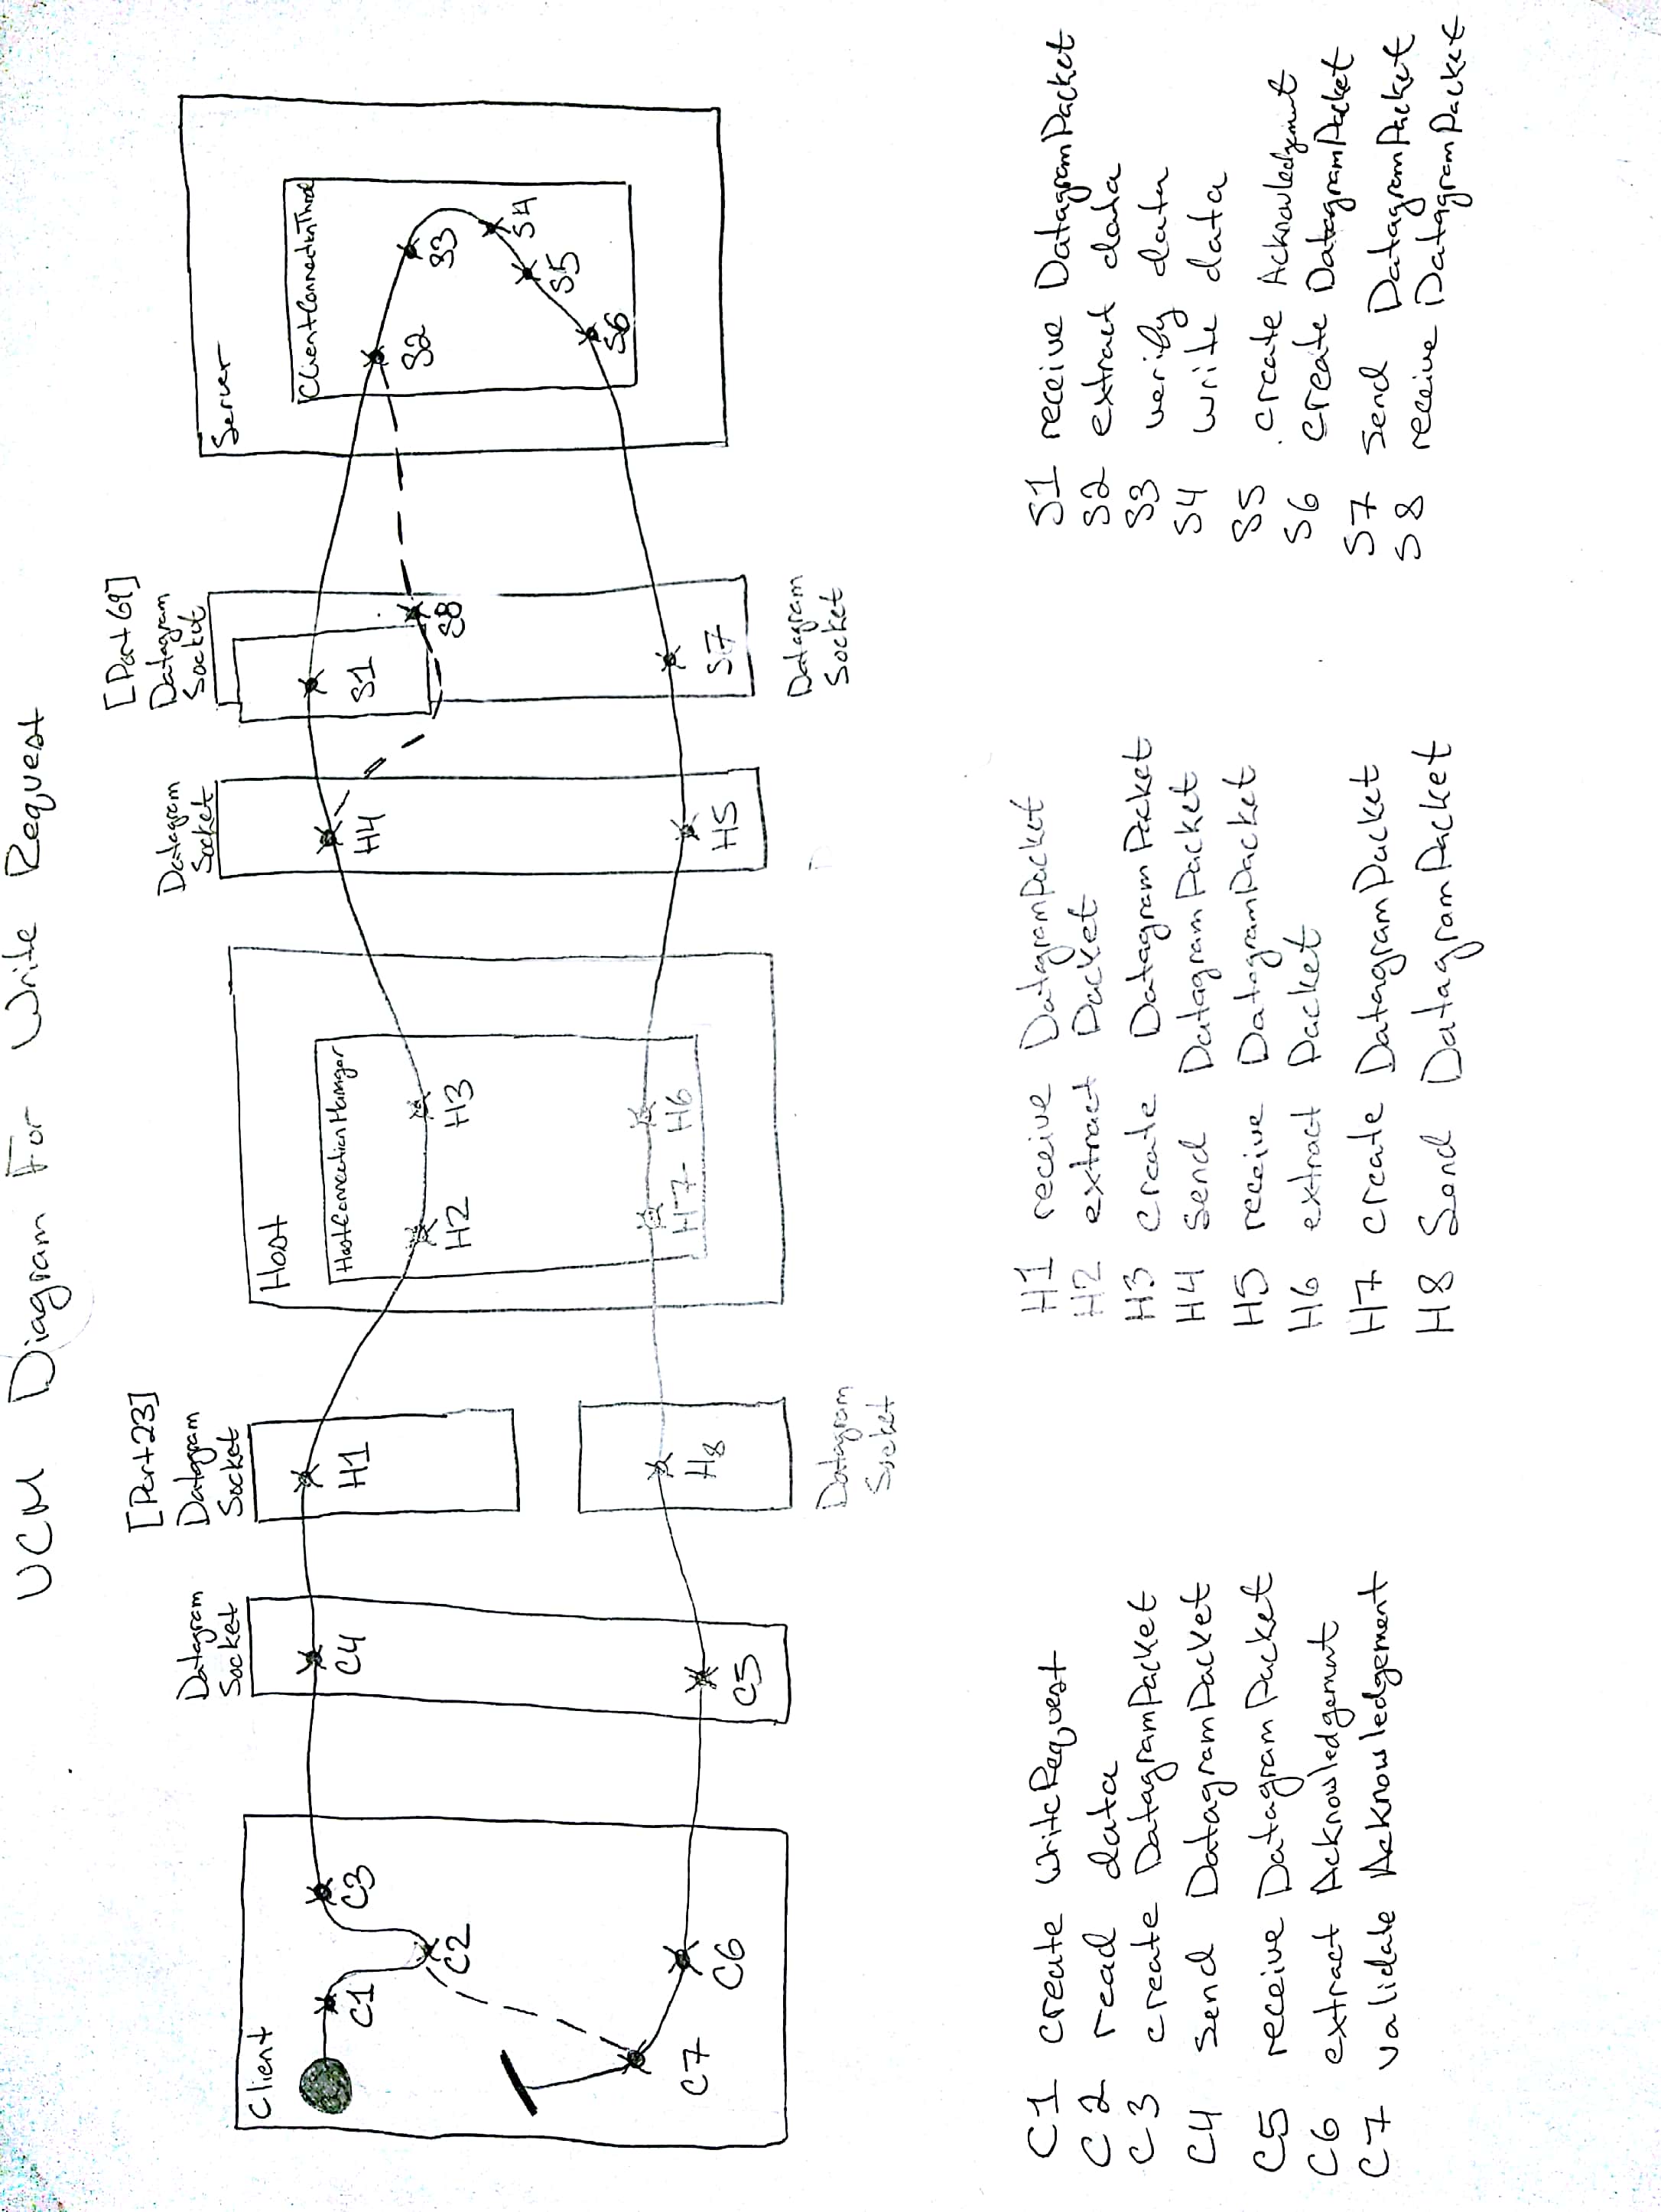 UCM Diagram For Write Request
[Port 69]
[Port23]
Datagram
Socket
Datagram
Socket
Datagram
Socket
Datagram
Socket
Client
Host
Server
HostConnectionManager
ClientConnectionThread
C1
C2
C3
C4
H1
H2
H3
H4
S1
S8
S2
S3
S4
S5
S6
S7
H5
H6
H7
H8
C5
C6
C7
Datagram
Socket
Datagram
Socket
C1 create WriteRequest
C2 read data
C3 create DatagramPacket
C4 send DatagramPacket
C5 receive DatagramPacket
C6 extract Acknowledgement
C7 validate Acknowledgement
H1 receive DatagramPacket
H2 extract Packet
H3 create DatagramPacket
H4 send DatagramPacket
H5 receive DatagramPacket
H6 extract Packet
H7 create DatagramPacket
H8 Send DatagramPacket
S1 receive DatagramPacket
S2 extract data
S3 verify data
S4 write data
S5 create Acknowledgement
S6 create DatagramPacket
S7 send DatagramPacket
S8 receive DatagramPacket